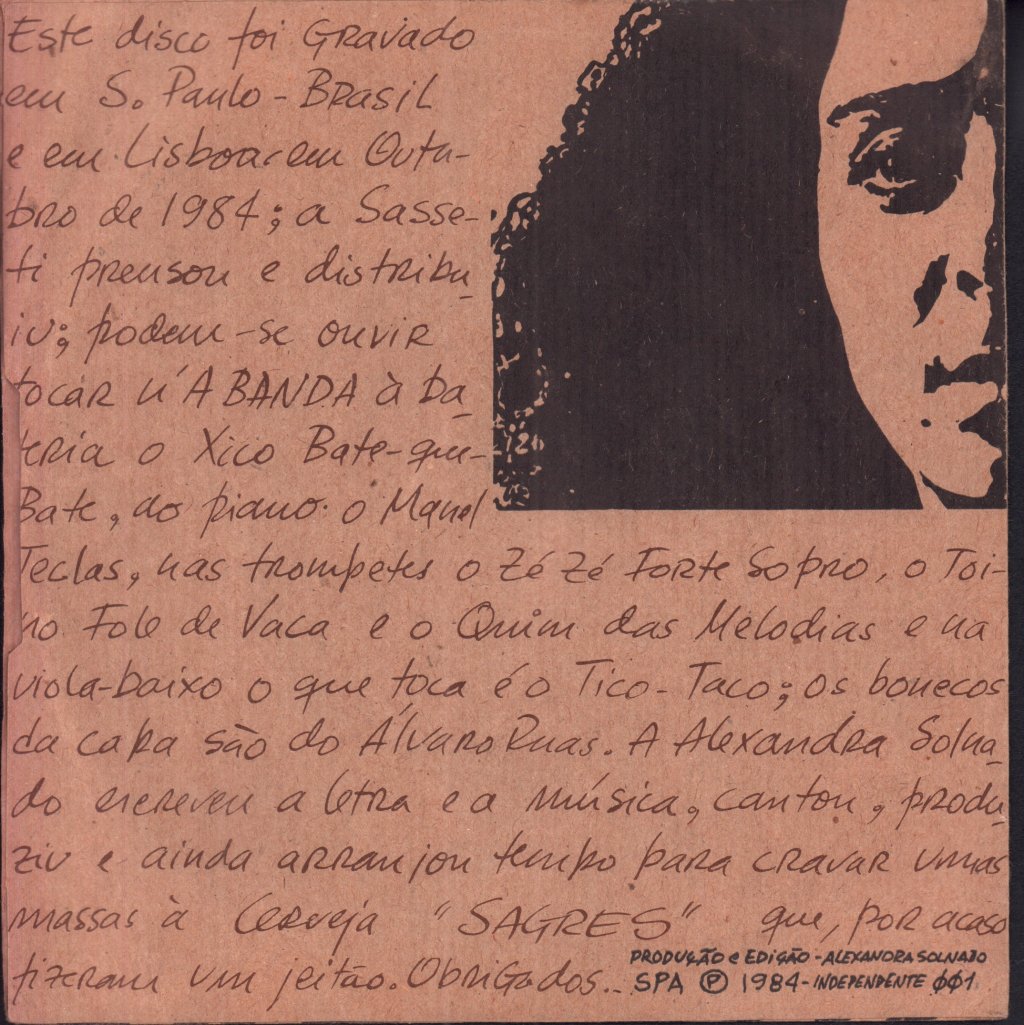 Este disco foi GRAVADO
em S. Paulo - BRASIL
e em Lisboa, em Outu-
bro de 1984; a Sasse-
ti prensou e distribu-
iu; podem-se ouvir
tocar n'A BANDA à ba-
teria o Xico Bate-que-
Bate, ao piano o Manel
Teclas, nas trompetes o Zé Zé Forte Sopro, o Toi-
no Fole de Vaca e o Quim das Melodias e na
viola-baixo o que toca é o Tico-Taco; os bonecos
da capa são do Álvaro Ruas. A Alexandra Solna-
do escreveu a letra e a música, cantou, produ-
ziu e ainda arranjou tempo para cravar umas
massas à Cerveja "SAGRES" que, por acaso
fizeram um jeitão. Obrigados..
PRODUÇÃO e EDIÇÃO - ALEXANDRA SOLNADO
SPA Ⓟ 1984 - INDEPENDENTE 001